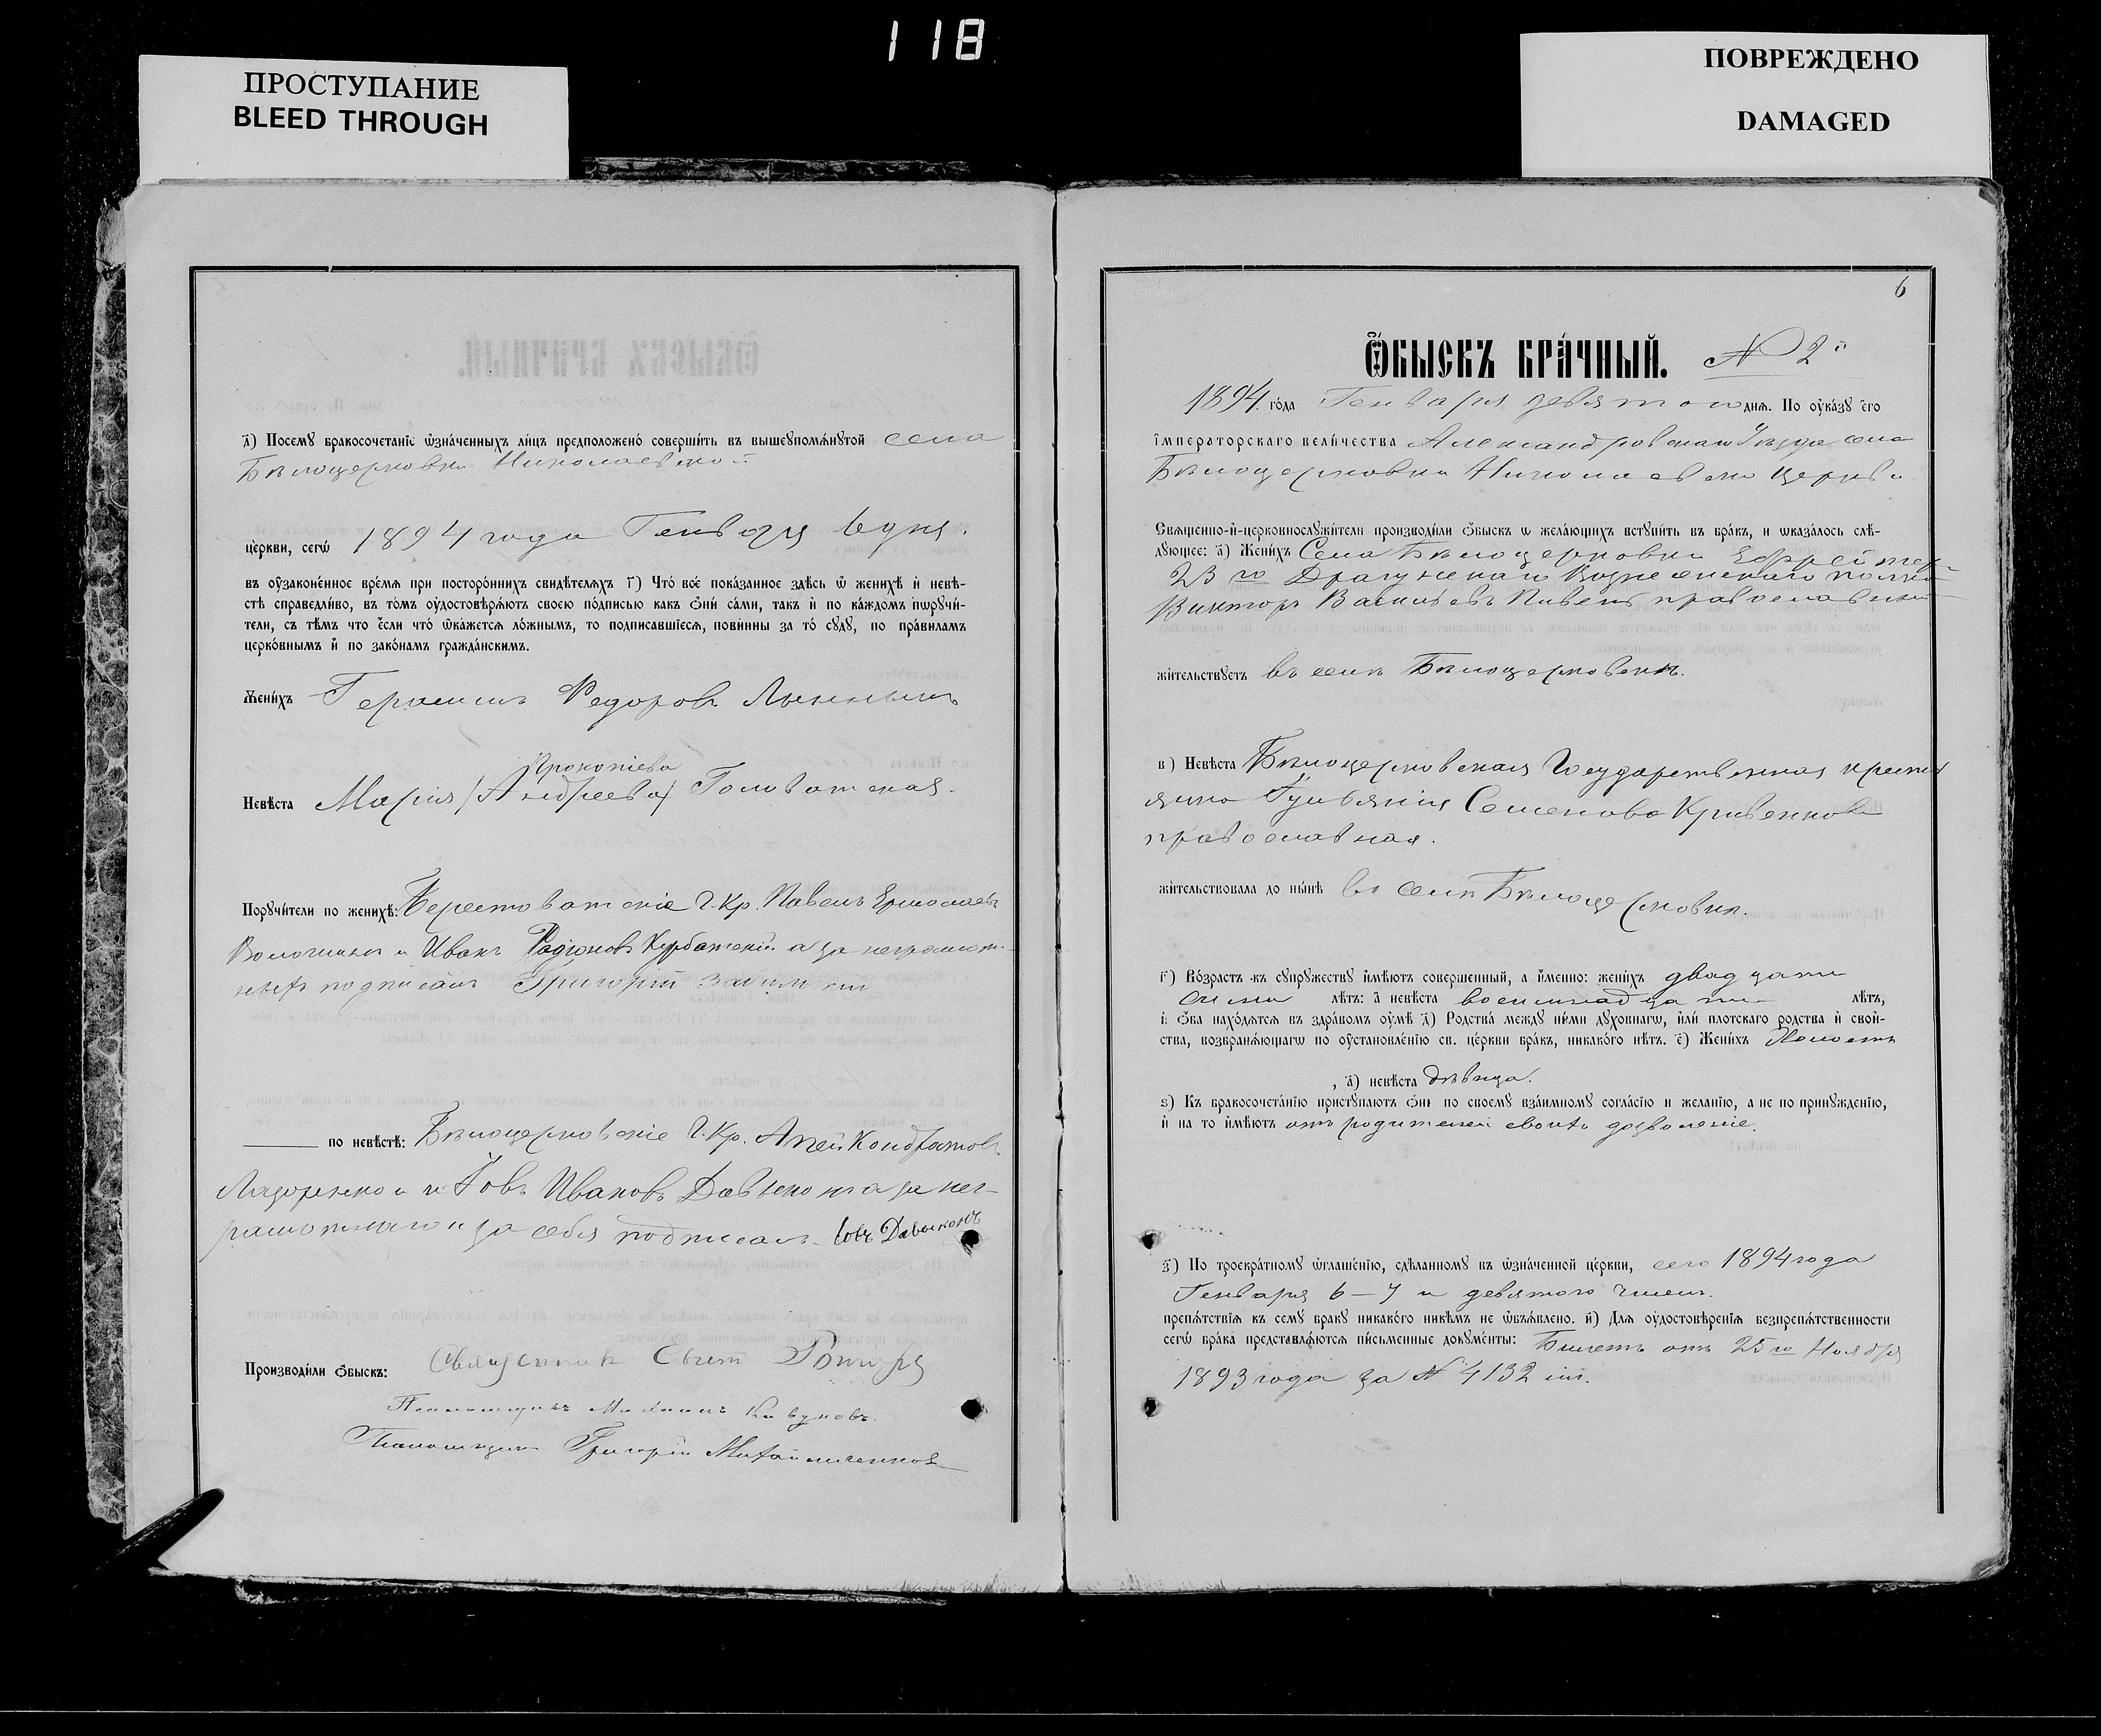 118
ПРОСТУПАНИЕ
BLEED THROUGH
ПОВРЕЖДЕНО
DAMAGED
д҃) Посемꙋ бракосочетаніе ѡзначенныхъ лицъ предположено совершить въ вышеупомѧнꙋтой села
Бѣлоцерковки Николаевской
церкви, сегѡ 1894 года Генваря 6 дня.
въ оузаконенное времѧ при постороннихъ свидѣтелѧхъ г҃) Что все показанное здѣсь ѿ женихѣ и невѣ-
стѣ справедливо, въ томъ оудостовѣрѧютъ своею подписью какъ ѻни сами, такъ и по каждомъ пѡрꙋчи-
тели, съ тѣмъ что если что ѿкажетсѧ ложнымъ, то подписавшіесѧ, повинны за то сꙋдꙋ, по правиламъ
церковнымъ и по законамъ гражданскимъ.
Женихъ Герасимъ Федоровъ
Невѣста Марія /Андреева/ Прокопіева Головатская.
Порꙋчители по женихѣ: Г. Кр. Павелъ Ермолаевъ
и Иванъ Радіоновъ Курбатскій а за неграмот-
ныхъ подписалъ Григорій
по невѣстѣ: Бѣлоцерковскіе Г. Кр. Кондратовъ
и Іовъ Ивановъ а за нег-
рамотнаго и за себя подписалъ Іовъ
Производили ѻбыскъ: Священникъ
Михаилъ
Григорій Михайличенковъ
6
Ѻбыскъ брачный. № 2й
1894. года Генваря девятого днѧ. По оуказꙋ его
императорскаго величества Александровскаго Уѣзда села
Бѣлоцерковки Николаевской церкви
Свѧщенно-и-церковнослꙋжители производили ѻбыскъ ѡ желающихъ встꙋпить въ бракъ, и ѡказалось слѣ-
дꙋющее: а҃) Женихъ Села Бѣлоцерковки Ефрейтеръ
23го Драгунскаго Вознесенскаго полка
Викторъ Васильевъ Пивень православный
жительствꙋетъ въ селѣ Бѣлоцерковкѣ.
в) Невѣста Бѣлоцерковская Государственная крестья
янка Семенова Кривенкова
православная.
жительствовала до нынѣ въ селѣ Бѣлоцерковкѣ.
г҃) Возрастъ къ сꙋпрꙋжествꙋ имѣютъ совершенный, а именно: женихъ двадцати
семи лѣтъ: а невѣста восемнадцати лѣтъ,
и ѻба находѧтсѧ въ здравомъ оумѣ д҃) Родства междꙋ ними дꙋховнагѡ, или плотскаго родства и свой-
ства, возбранѧющагѡ по оустановленію св. церкви бракъ, никакого нѣтъ. е҃) Женихъ Холостъ
, а҃) невѣста дѣвица.
ѕ) Къ бракосочетанію пристꙋпаютъ ѻни по своемꙋ взаимномꙋ согласію и желанію, а не по принꙋжденію,
и на то имѣютъ отъ родителей своихъ дозволеніе.
з҃) По троекратномꙋ ѡглашенію, сдѣланномꙋ въ ѡзначенной церкви, сего 1894 года
Генваря 6 – 7 и девятого чиселъ.
препѧтствіѧ къ семꙋ бракꙋ никакого никѣмъ не ѡбъѧвлено. и҃) Длѧ оудостовѣреніѧ безпрепѧтственности
сегѡ брака представлѧютсѧ письменные докꙋменты: Билетъ отъ 25го Ноября
1893 года за № 4132 im.